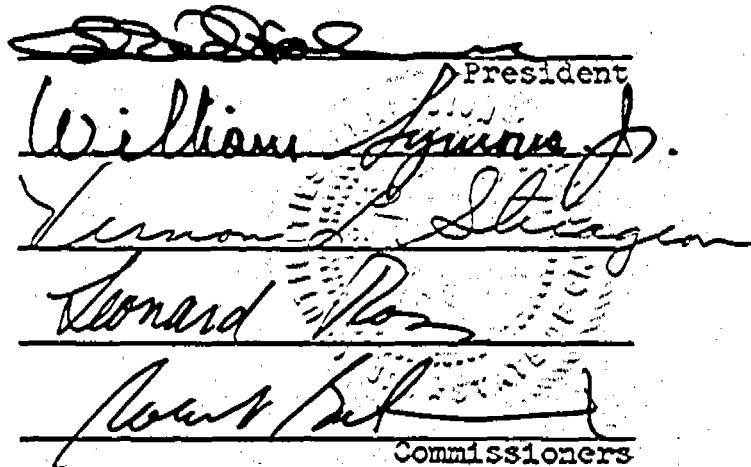 President
William Symons Jr.
Vernon L. Sturgeon
Leonard Ross
Robert
Commissioners